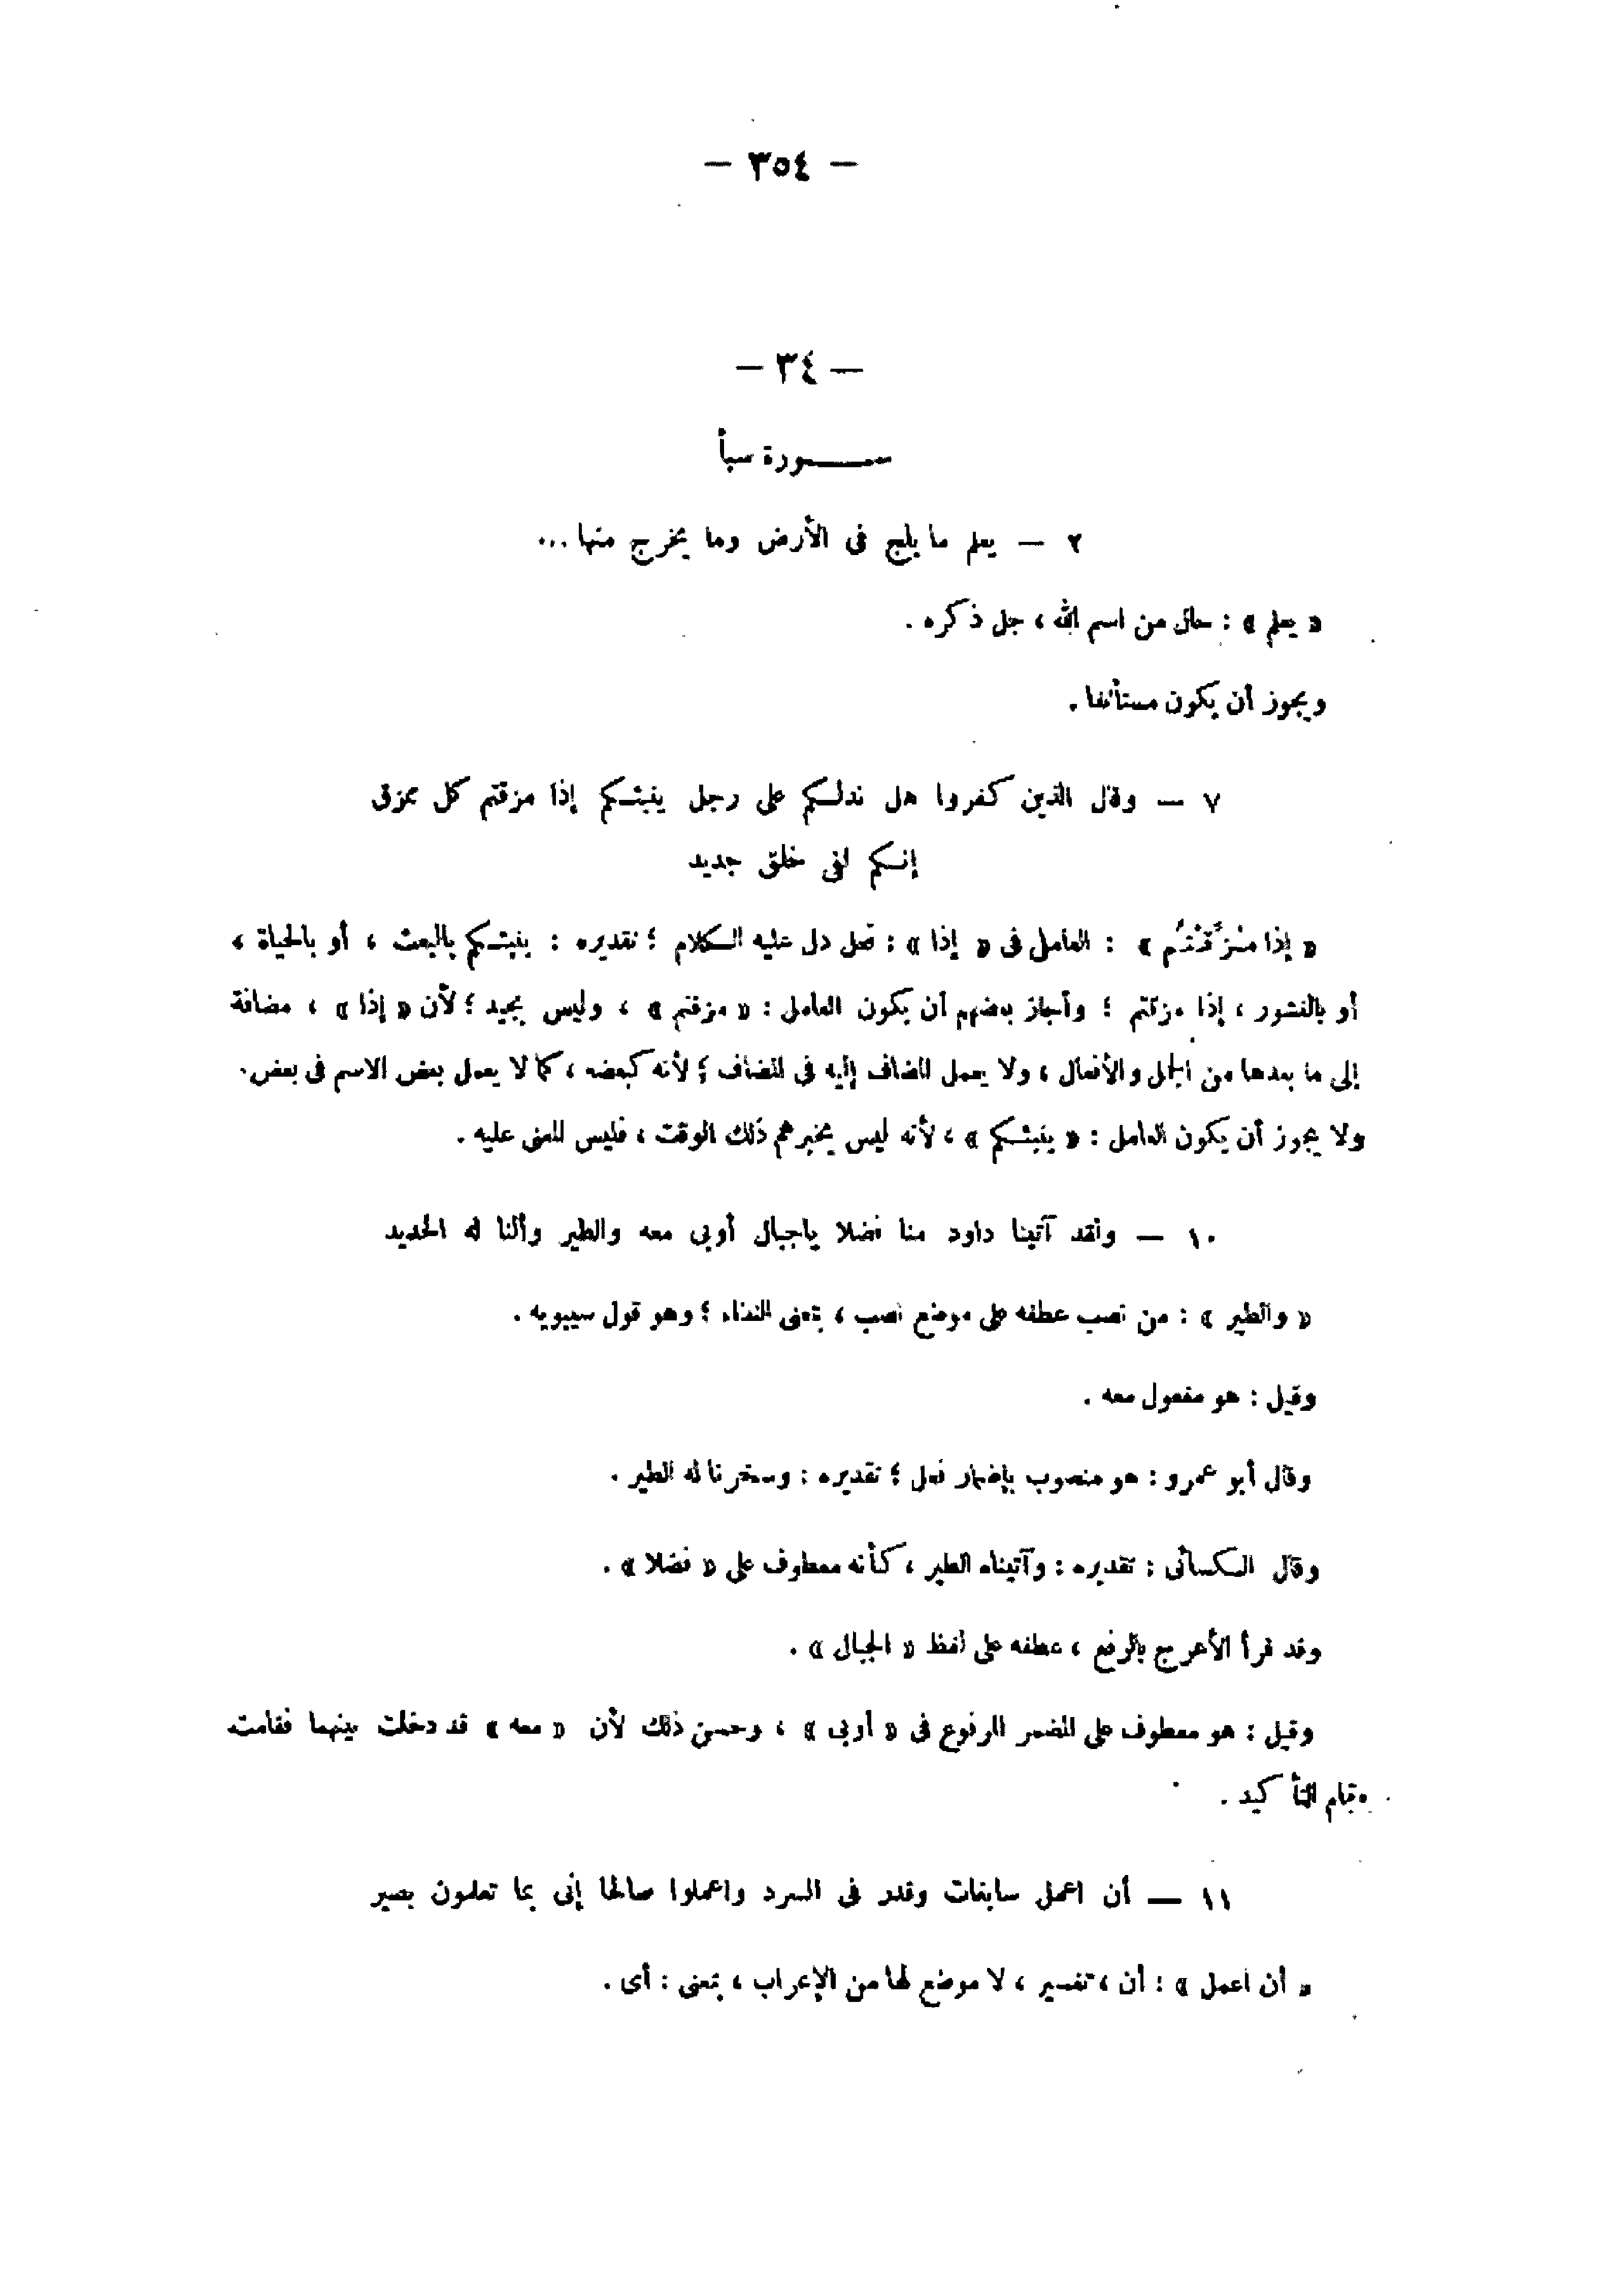 — ٣٥٤ —
— ٣٤ —
سورة سبأ
٢ — يعلم ما يلج فى الأرض وما يخرج منها ...
« يعلم » : حال من اسم الله ، جل ذكره .
ويجوز أن يكون مستأنفا .
٧ — وقال الذين كفروا هل ندلكم على رجل ينبئكم إذا مزقتم كل ممزق
إنكم لفى خلق جديد
« إذا مُزِّقْتُم » : العامل فى « إذا » : فعل دل عليه الكلام ؛ تقديره : ينبئكم بالبعث ، أو بالحياة ،
أو بالنشور ، إذا مزقتم ؛ وأجاز بعضهم أن يكون العامل : « مزقتم » ، وليس بجيد ؛ لأن « إذا » ، مضافة
إلى ما بعدها من الجمل والأفعال ، ولا يعمل المضاف إليه فى المضاف ؛ لأنه كبعضه ، كما لا يعمل بعض الاسم فى بعض .
ولا يجوز أن يكون العامل : « ينبئكم » ، لأنه ليس يخبرهم ذلك الوقت ، فليس المعنى عليه .
١٠ — ولقد آتينا داود منا فضلا ياجبال أوبى معه والطير وألنا له الحديد
« والطير » : من نصب عطفه على موضع نصب ، بمعنى النداء ؛ وهو قول سيبويه .
وقيل : هو مفعول معه .
وقال أبو عمرو : هو منصوب بإضمار فعل ؛ تقديره : وسخرنا له الطير .
وقال الكسائى : تقديره : وآتيناه الطير ، كأنه معطوف على « فضلا » .
وقد قرأ الأعرج بالرفع ، عطفه على لفظ « الجبال » .
وقيل : هو معطوف على المضمر المرفوع فى « أوبى » ، وحسن ذلك لأن « معه » قد دخلت بينهما فقامت
مقام التأكيد .
١١ — أن اعمل سابغات وقدر فى السرد واعملوا صالحا إنى بما تعلمون بصير
« أن اعمل » : أن ، تفسير ، لا موضع لها من الإعراب ، بمعنى : أى .